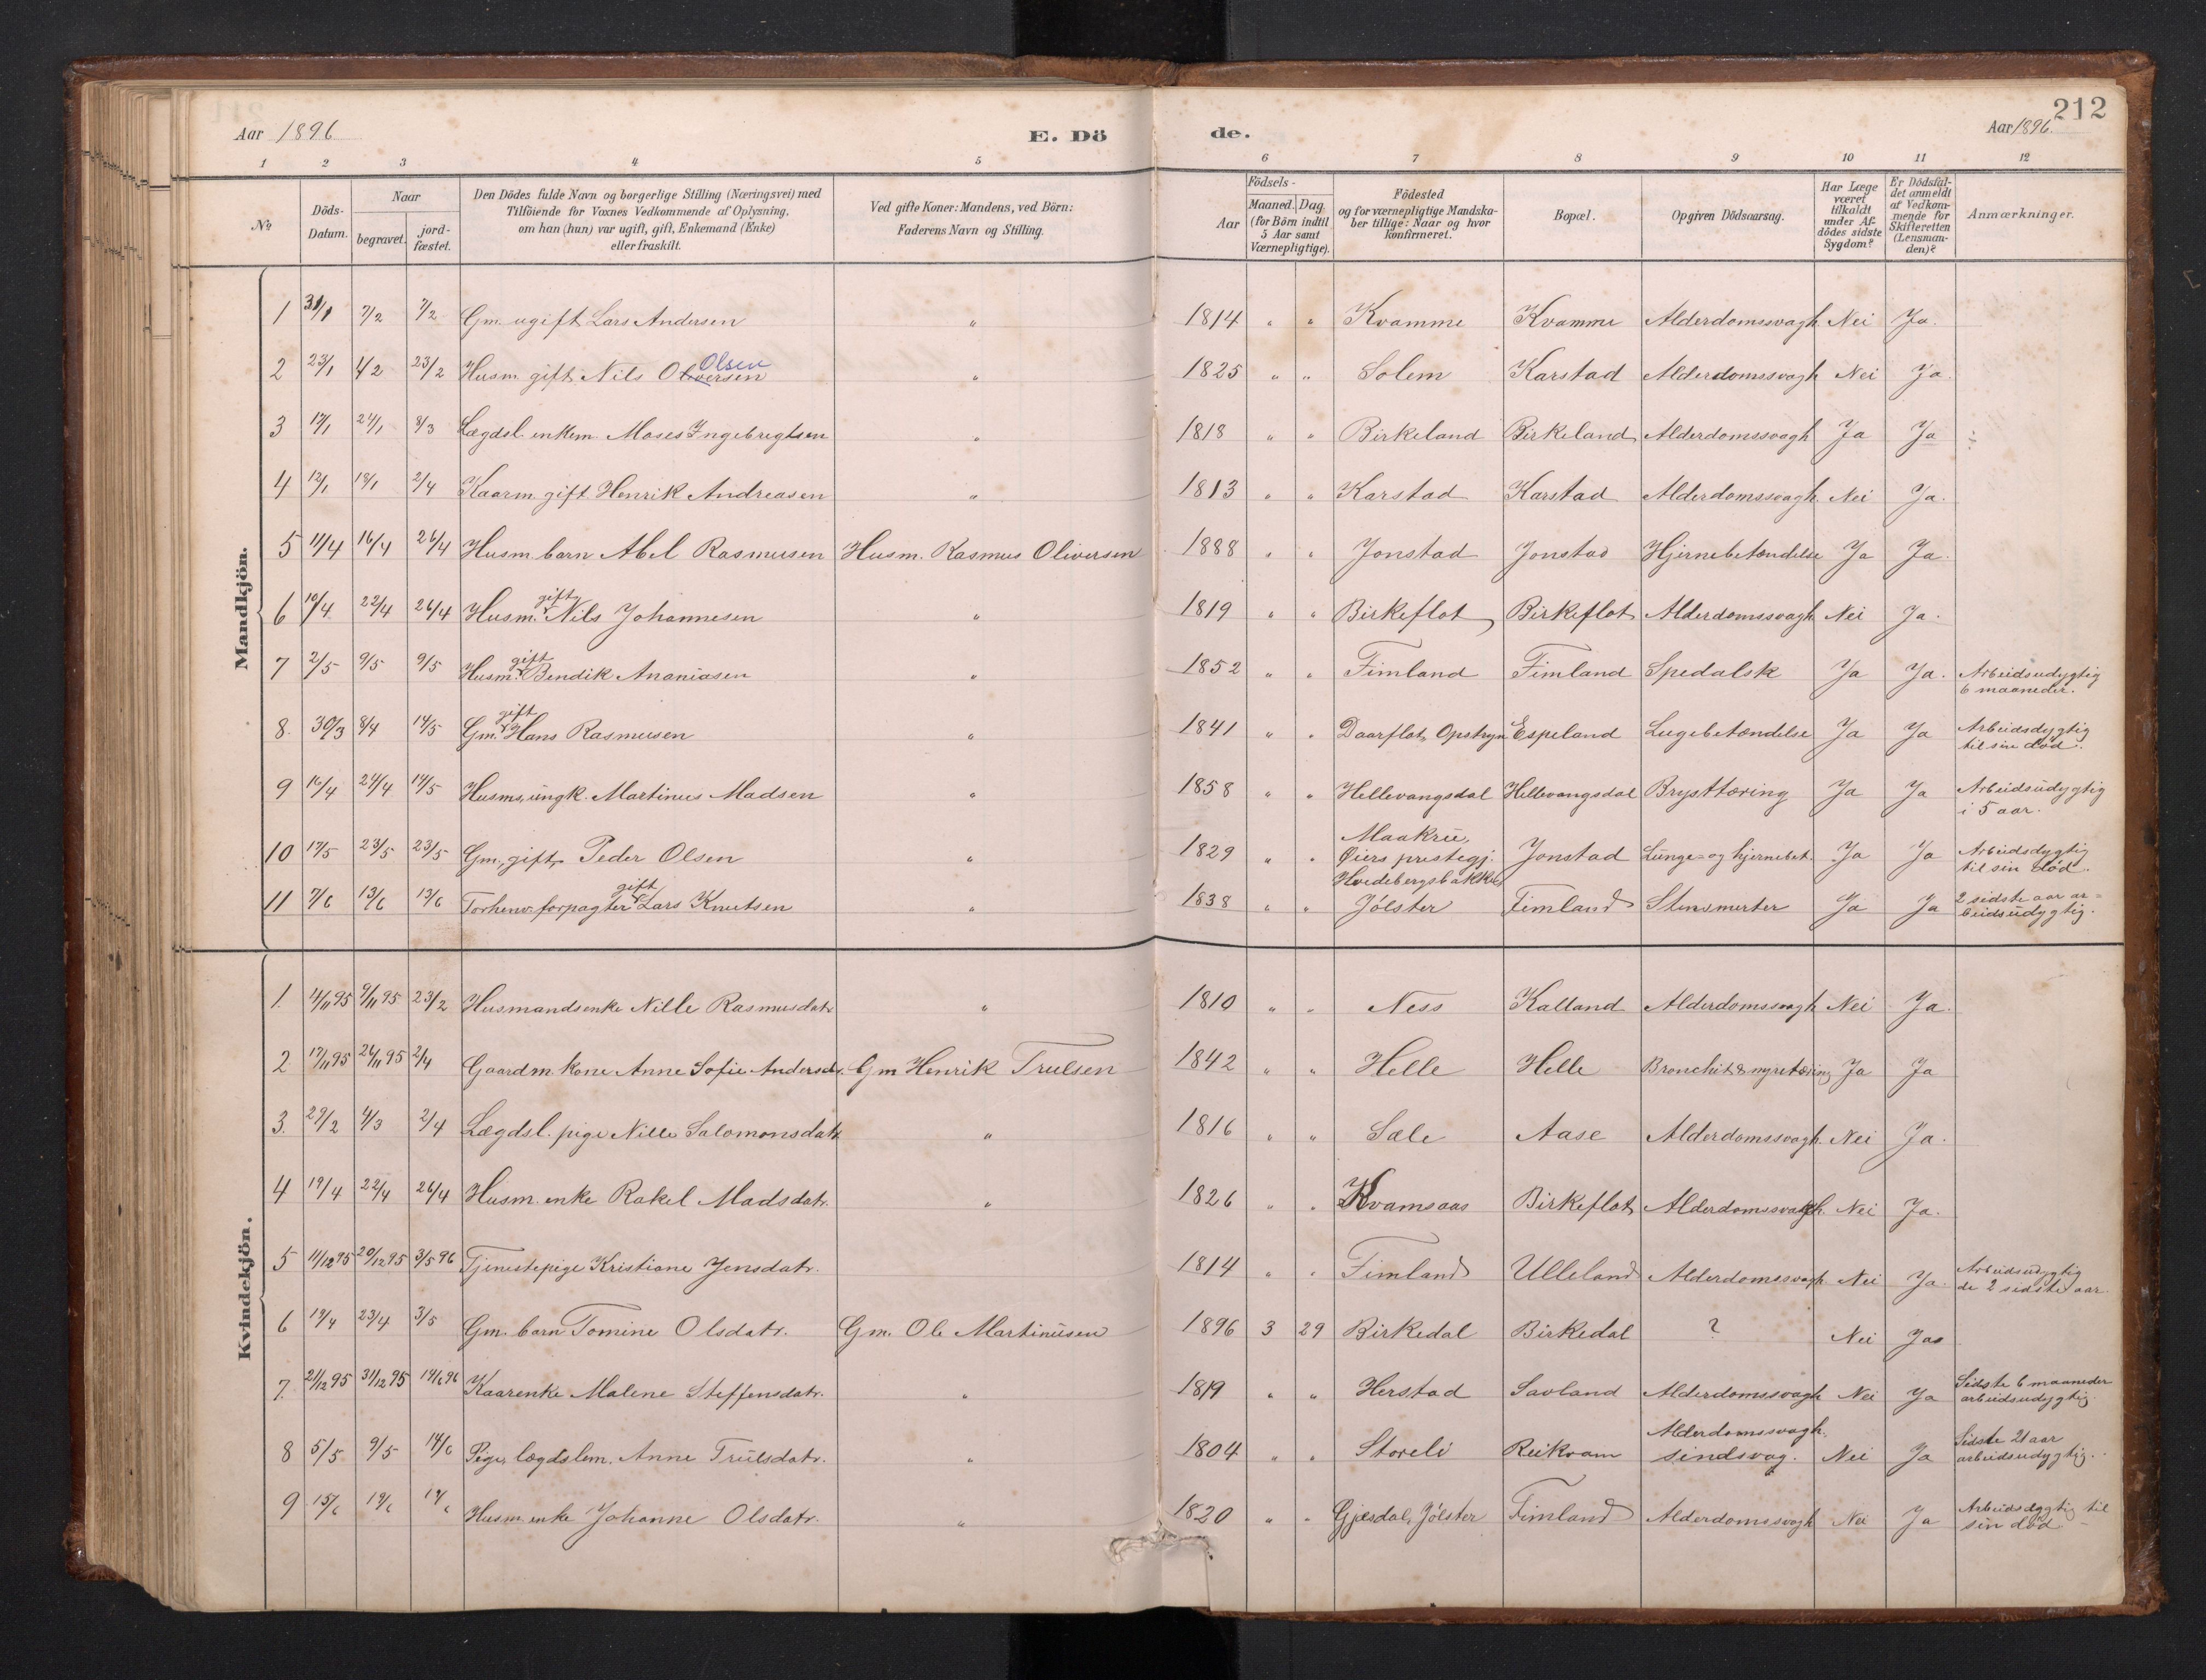 212
Aar 1896 E. Dö de. Aar 1896.
1 2 3 4 5 6 7 8 9 10 11 12
No
Döds-Datum.
Naar
begravet.
jord-fæstet.
Den Dödes fulde Navn og borgerlige Stilling (Næringsvei) med
Tilföiende for Voxnes Vedkommende af Oplysning,
om han (hun) var ugift, gift, Enkemand (Enke)
eller fraskilt.
Ved gifte Koner: Mandens, ved Börn:
Faderens Navn og Stilling.
Födsels-
Aar
Maaned. Dag.
(for Börn indtil
5 Aar samt
Værnepligtige).
Födested
og for værnepligtige Mandska-
ber tillige: Naar og hvor
konfirmeret.
Bopæl.
Opgiven Dödsaarsag.
Har Læge
været
tilkaldt
under Af-
dödes sidste
Sygdom?
Er Dödsfal-
det anmeldt
af Vedkom-
mende for
Skifteretten
(Lensman-
den)?
Anmærkninger.
Mandkjön.
1 31/1 7/2 7/2 Gm. ugift Lars Andersen " 1814 " " Kvamme Kvamme Alderdomssvagh. Nei Ja.
Olsen
2 23/1 4/2 23/2 Husm. gift. Nils Oliversen " 1825 " " Solem Karstad Alderdomssvagh Nei Ja.
3 17/1 24/1 8/3 Lægdsl. enkem. Moses Ingebrigtsen " 1818 " " Birkeland Birkeland Alderdomssvagh Ja Ja
4 12/1 18/1 2/4 Kaarm. gift. Henrik Andreasen " 1813 " " Karstad Karstad Alderdomssvagh. Nei Ja.
5 11/4 16/4 26/4 Husm. barn Abel Rasmusen Husm. Rasmus Oliversen 1888 " " Jonstad Jonstad Hjernebetændelse Ja Ja.
gift
6 10/4 22/4 26/4 Husm. Nils Johannesen " 1819 " " Birkeflot Birkeflot Alderdomssvagh. Nei Ja.
gift
7 2/5 9/5 9/5 Husm. Bendik Ananiasen " 1852 " " Fimland Fimland Spedalsk Ja Ja. Arbeidsudygtig
6 maaneder.
gift
8. 30/3 8/4 14/5 Gm. Hans Rasmusen " 1841 " " Daarflot, Opstryn Espeland Lugebetændelse Ja Ja Arbeidsdygtig
til sin död.
9 16/4 24/4 14/5 Husms. ungk. Martinus Madsen " 1858 " " Hellevangsdal Hellevangsdal Brysttæring Ja Ja Arbeidsudygtig
i 5 aar.
Maakrü,
10 17/5 23/5 23/5 Gm., gift, Peder Olsen " 1829 " " Øiers prestegj. Jonstad Lunge- og hjernebet. Ja Ja Arbeidsdygtig
til sin död.
gift Hvedebergsbakken
11 7/6 13/6 13/6 Torhenv. forpagter Lars Knutsen " 1838 " " Jölster Fimland Stensmerter Ja Ja 2 sidste aar ar=
beidsudygtig.
Kvindekjön.
1. 4/11 95 9/11 95 23/2 Husmandsenke Nille Rasmusdatr " 1810 " " Ness Kalland Alderdomssvagh Nei Ja.
2 17/11 95 24/11 95 2/4 Gaardm. kone Anne Sofie Andersdr. Gm Henrik Trulsen 1842 " " Helle Helle Bronchit & nyretæring Ja Ja
3. 27/2 4/3 2/4 Lægdsl. pige Nille Salomonsdatr " 1816 " " Sæle Aase Alderdomssvagh. Nei Ja.
4 19/4 22/4 26/4 Husm. enke Rakel Madsdatr. " 1826 " " Kvamsaas Birkeflot Alderdomssvagh. Nei Ja.
5 11/12 95 20/12 95 3/5 96 Tjenestepige Kristiane Jensdatr. 1814 " " Fimland Ulleland Alderdomssvagh. Nei Ja. Arbeidsudygtig
de 2 sidste aar.
6 19/4 23/4 3/5 Gm. barn Tomine Olsdatr. Gm. Ole Martinusen 1896 3 29 Birkedal Birkedal ? Nei Ja
7. 21/12 95 31/12 95 14/6 96 Kaarenke Malene Steffensdatr. " 1819 " " Herstad Savland Alderdomssvagh Nei Ja Sidste 6 maaneder
arbeidsudygtig.
Alderdomssvagh.
8 5/5 9/5 14/6 Pige, lægdslem. Anne Trulsdatr. " 1804 " " Storeli Reikvam sindsvag. Nei Ja Sidste 21 aar
arbeidsudygtig.
9 15/6 19/6 19/6 Husm. enke Johanne Olsdatr. " 1820 " " Gjesdal, Jölster Fimland Alderdomssvagh Nei Ja Arbeidsdygtig til
sin död